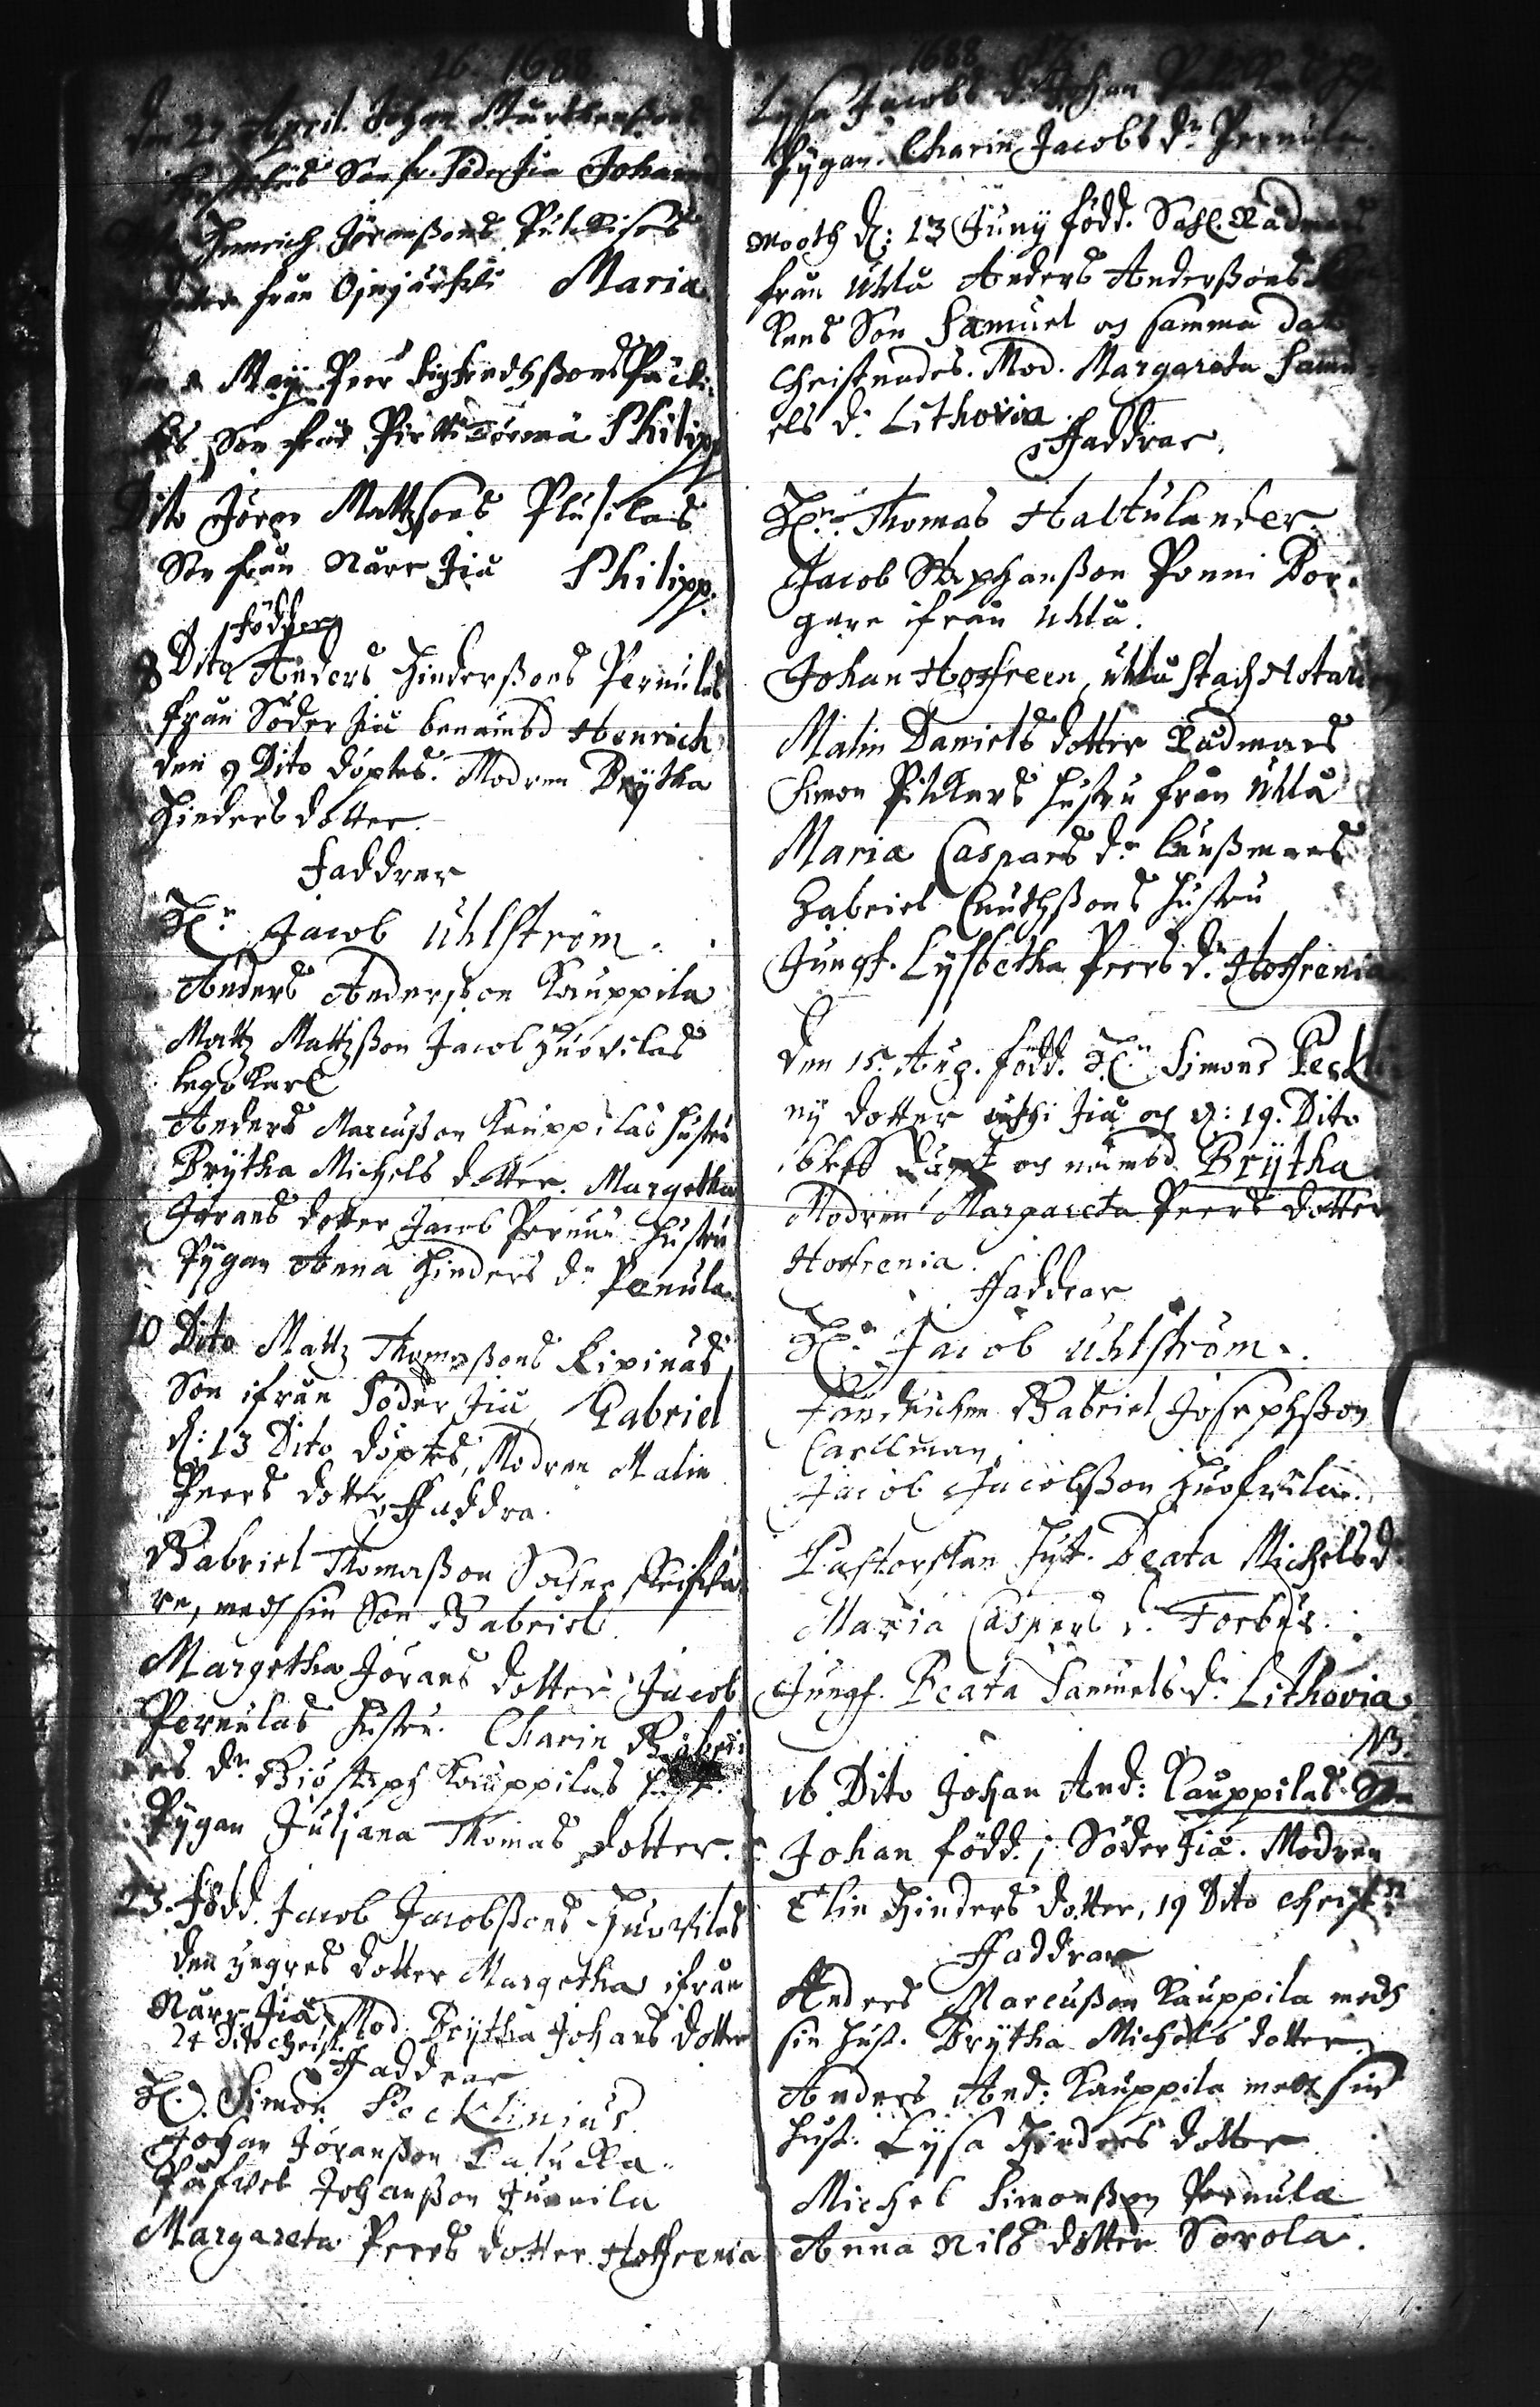 16. 1688
den 22 April. Johan
Son fr. Söder Jio Johan
Henrich Jöranßons Pulkises
från Ojnjärfvi Maria
May Peer Sigfredhßons
Son från Pirttitörmä Philipp
Dito Jören Mattzsons Plusilas
Son från Närr Jio Philipp.
född
8 Dito Anders Hinderßons Pernulas
från Söder Jio benämbd Henrich
den 9 Dito döptes. Modren Brÿtha
Hinders dotter.
Faddrar
Hr Jacob Uhlström.
Anders Andersson Kauppila
Mattz Mattzßon Jacob Huovilas
lego Karl
Anders Marcußon Kauppilas hustru
Brÿtha Michels dotter. Margetha
Jörans dotter Jacob Pernu hustru
Pÿgan Anna Hinders dr Pernula.
10 Dito Mattz Thomaßons Kipinas
Son ifrån Söder Jio Gabriel
d: 13 Dito döptes, Modren Malin
Peers dotter Faddra.
Gabriel Thomaßon Sochne skrifva
re, medh sin Son Gabriel
Margetha Jörans dotter Jacob
Pernulas hustru. Charin Gabri
els dr Kauppilas hust.
Pÿgan Juliana Thomas dotter.
23. född. Jacob Jacobßons Huovilas
den yngres dotter Margetha ifrån
Närr Jio Mod. Brÿtha Johans dotter
24 Dito christ.
Faddrar
Hr. Simon Pecklinius
Johan Jöranßon Calucka.
Påfvel Johanßon Junnila
Margareta Peers dotter Hoffrenia
1688 17.
Lÿsa Jacobs dr Johan
Pÿgan. Charin Jacobs dr Pernula
Mooth d: 13 Junij född. Sahl. Rådmans
från Uhlå Anders Anderßons
Kens Son Samuel og samma dato
Christnades. Mod. Margareta Samu
els dr. Lithovia
Faddrar.
Hr. Thomas Haltulander.
Jacob Staphanßon Ponni Bor-
gare ifrån Uhlå.
Johan Hoffreen, Uhlå stadz Notarie
Malin Daniels dotter Rådmans
Simon Pihkars hustru från Uhlå
Maria Caspars dr Länßmans
Gabriel Cnuthßons hustru
Jungf. Lÿsbetha Peers dr. Hoffrenia
den 15. Aug. född. Hr. Simons Peckli
nÿ dotter uthi Jio och d: 19. Dito
bleff döpt og nämbd Brÿtha
Modren Margareta Peers dotter
Hoffrenia.
Faddrar
Hr. Jacob Uhlström.
Fendrichen Gabriel Josephßon
Carlman
Jacob Jacobßon Huofvila.
Pastorskan hust. Beata Michels dr
Maria Caspers dr. Forbus.
Jungf. Beata Samuels dr. Lithovia
NB.
16 Dito Johan And: Cauppilas Son
Johan född. i Söder Jio. Modren
Elin Hinders dotter, 19 Dito christn
Faddrar
Anders Marcußon Kauppila medh
sin hust. Brÿtha Michels dotter.
Anders And: Kauppila medh sin
hust. Lÿsa Hinders dotter
Michel Simonßon Pernula
Anna Nils dotter Sorola.